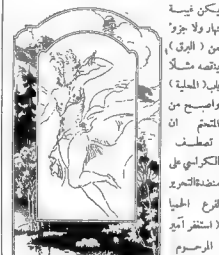 يكن غيبة
نهار ولا جزوء
من ( البرق )
ينقصه مثلا
باب ( المحلية )
واصبح من
المتحتم ان
تصطف
الكراسي على
منضدة التحرير
لفرع المحيا
لا استنفر أمير
المرحوم